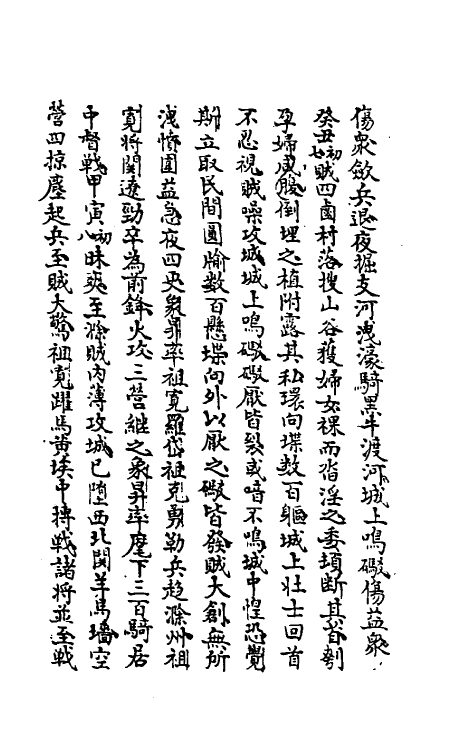 傷衆斂兵退夜掘支河洩濠騎黑牛渡河城上鳴礮傷益衆
癸丑初七賊四鹵村落搜山谷獲婦女裸而沓淫之委頓斷其首刳
孕婦咸股倒埋之植附露其私環向堞數百軀城上壯士回首
不忍視賊噪攻城城上鳴礮礮厭皆裂或喑不鳴城中惶恐覺
斯立取民間圊牏數百懸堞向外以厭之礮皆發賊大創無所
洩憤圍益急夜四更象昇率祖寬羅岱祖克勇勒兵趨滁州祖
寬將關遼勁卒為前鋒火攻三營繼之象昇率麾下三百騎居
中督戰甲寅初八昧爽至滁賊肉薄攻城已墮西北関羊馬墻空
營四掠塵起兵至賊大驚祖寬躍馬黃埃中搏戰諸將並至戰